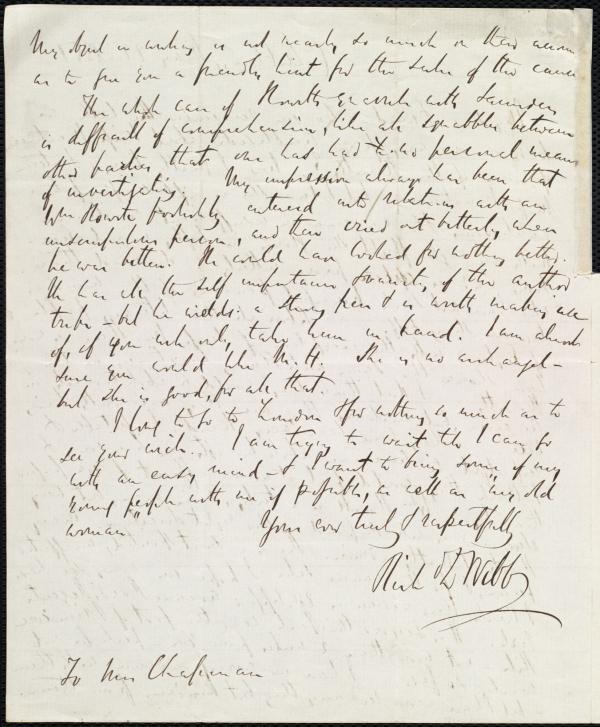 My object in writing is not nearly so much on their account
as to give you a friendly hint for the sake of the cause
The whole case of Howitt's quarrel with Saunders
is difficult of comprehension, like all squabbles between
other parties that one has had no personal means
of investigating. My impression always has been that
Wm Howitt foolishly entered into relations with an
unscrupulous person, and then cried out bitterly when
he was bitten. He could have looked for nothing better.
He has all the self importance of the author
tribe - but he wields a strong pen & is worth making use
of, if you will only take him in hand. I am almost
sure you would like M. H. She is no archangel -
but she is good, for all that.
I long to go to London for nothing so much as to
see your with. I am trying to wait till I can go
with an easy mind - & I want to bring some of my
young people with me if possible, as well as "my old
woman"
Yours ever truly & respectfully
Rich d D Webb
To Mrs Chapman